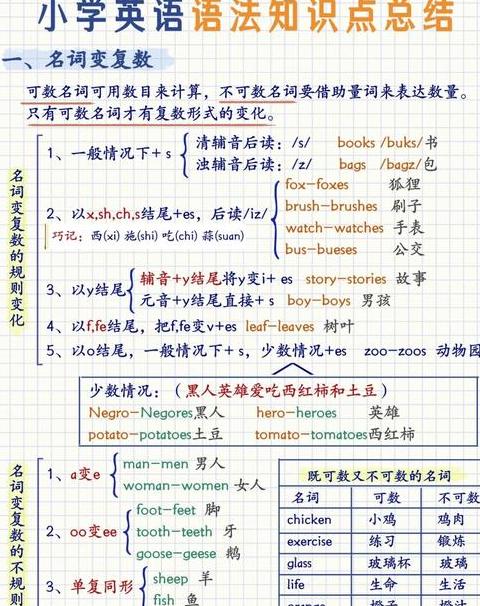 小学英语语法知识点总结
一、名词变复数
可数名词可用数目来计算，不可数名词要借助量词来表达数量。
只有可数名词才有复数形式的变化。
名词变复数的规则变化
1、一般情况下+ s
清辅音后读：/s/ books /buks/书
浊辅音后读：/z/ bags /bagz/包
2、以x,sh,ch,s结尾+es，后读/iz/
巧记：西(xi) 施(shi) 吃(chi) 蒜(suan)
fox-foxes 狐狸
brush-brushes 刷子
watch-watches 手表
bus-bueses 公交
3、以y结尾
辅音+y结尾将y变i+ es story-stories 故事
元音+y结尾直接+ s boy-boys 男孩
4、以f,fe结尾，把f,fe变v+es leaf-leaves 树叶
5、以o结尾，一般情况下+ s，少数情况+es zoo-zoos 动物园
少数情况：（黑人英雄爱吃西红柿和土豆）
Negro-Negores黑人 hero-heroes 英雄
potato-potatoes土豆 tomato-tomatoes西红柿
名词变复数的不规则
1、a变e
man-men 男人
woman-women 女人
2、oo变ee
foot-feet 脚
tooth-teeth 牙
goose-geese 鹅
3、单复同形
sheep 羊
fish 鱼
既可数又不可数的名词
名词 可数 不可数
chicken 小鸡 鸡肉
exercise 练习 锻炼
glass 玻璃杯 玻璃
life 生命 生活